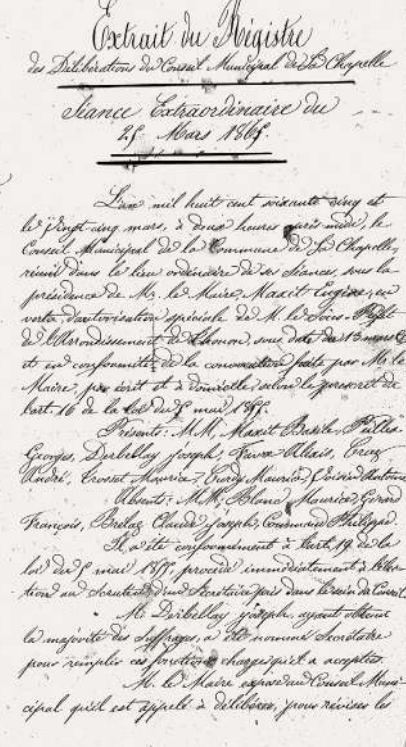 Extrait du Régistre
des Délibérations du Conseil Municipal de La Chapelle
Séance Extraordinaire du
25 Mars 1865
L'an mil huit cent soixante cinq et
le vingt cinq mars, à deux heures après midi, le
Conseil Municipal de la Commune de La Chapelle,
réuni dans le lieu ordinaire de ses Séances, sous la
présidence de Mr. le Maire, Maxit Eugène, en
vertu d'autorisation spéciale de M. le Sous-Préfet
de l'Arrondissement de Thonon, sous date du 13 mars
et en conformité de la convocation faite par Mr le
Maire, par écrit et à domicile selon le prescrit de
l'art. 16 de la loi du 5 mai 1855.
Présents: MM. Maxit Basile,
Georges, Derbellay Joseph, Favre Alexis, Cruz
André, Crosset Maurice, Maurice, Voisin Antoine
Absents: MM. Blanc Maurice, Gérard
François, Brelaz Claude Joseph, Philippe.
Il a été conformément à l'art. 19 de la
loi du 5 mai 1855, procédé immédiatement à l'élec-
tion au Scrutin d'un Secrétaire pris dans le sein du Conseil
Mr Derbellay Joseph, ayant obtenu
la majorité des suffrages, a été nommé Secrétaire
pour remplir ces fonctions charge qu'il a acceptée.
M. le Maire expose au Conseil Muni-
cipal qu'il est appelé à délibérer, pour réviser les